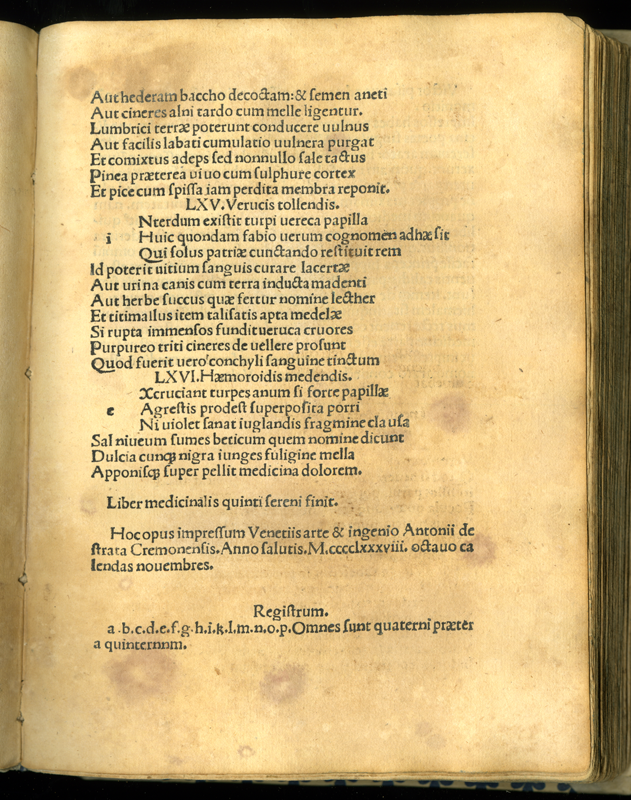 Aut hederam baccho decoctam: & semen aneti
Aut cineres alni tardo cum melle ligentur.
Lumbrici terræ poterunt conducere uulnus
Aut facilis labati cumulatio uulnera purgat
Et comixtus adeps sed nonnullo sale tactus
Pinea præterea uiuo cum sulphure cortex
Et pice cum spissa iam perdita membra reponit.
LXV. Verucis tollendis.
Nterdum existit turpi uereca papilla
i Huic quondam fabio uerum cognomen adhæsit
Qui solus patriæ cunctando restituit rem
Id poterit uitium sanguis curare lacertæ
Aut urina canis cum terra inducta madenti
Aut herbe succus quæ fertur nomine lecther
Et titimallus item talisatis apta medelæ
Si rupta immensos fundit ueruca cruores
Purpureo triti cineres de uellere prosunt
Quod fuerit uero conchyli sanguine tinctum
LXVI. Hæmoroidis medendis.
Xcruciant turpes anum si forte papillæ
e Agrestis prodest superposita porri
Ni uiolet sanat iuglandis fragmine clausa
Sal niueum sumes beticum quem nomine dicunt
Dulcia cunqꝫ nigra iunges fuligine mella
Apponisqꝫ super pellit medicina dolorem.
Liber medicinalis quinti sereni finit.
Hoc opus impressum Venetiis arte & ingenio Antonii de
strata Cremonensis. Anno salutis. M.cccclxxxviii. octauo ca
lendas nouembres.
Registrum.
a.b.c.d.e.f.g.h.i.k.l.m.n.o.p. Omnes sunt quaterni præter
a quinternnm.